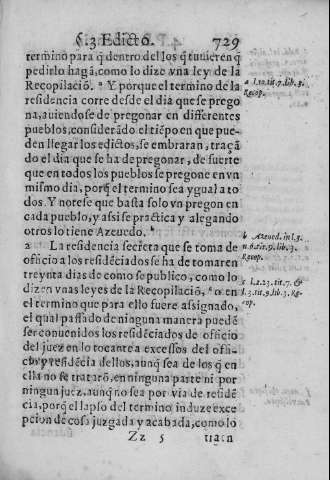 §. 3 Edicto. 729
termino para q̃ dentro dellos q̃ tuuieren q̃
pedirlo hagã, como lo dize vna ley de la
Recopilaciõ. ª Y porque el termino de la
residencia corre desde el dia que se prego
na, auiendose de pregonar en differentes
pueblos, considerãdo el tiẽpo en que pue-
den llegar los edictos, se embraran, traçã
do el dia que se ha de pregonar, de suerte
que en todos los pueblos se pregone en vn
mismo dia, porq̃ el termino sea ygual a to
dos. Y notese que basta solo vn pregon en
cada pueblo, y assi se practica y alegando
otros lo tiene Azeuedo. ᵇ
2 La residencia secreta que se toma de
officio a los residẽciados se ha de tomar en
treynta dias de como se publico, como lo
dizen vnas leyes de la Recopilaciõ, ᶜ o en
el termino que para ello fuere assignado,
el qual passado de ninguna manera puedẽ
ser conuenidos los residẽciados de officio
del juez en lo tocante a excessos del offi-
cio y residẽcia dellos, aunq̃ sea de los q̃ en
ella no se tratarõ, en ninguna parte ni por
ningun juez, aunq̃ no sea por via de residẽ
cia, porq̃ el lapso del termino induze exce
pcion de cosa juzgada y acabada, como lo
Zz 5
a l.10.tit.7.lib.3.
Recop.
b Azeued. in l.3.
n.6.tit.9.lib.3.
Recop.
c l.1.23.tit.7. &
l.3.tit.9.lib.3. Re-
cop.